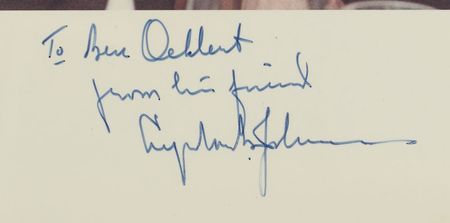 To Ben Oehlert
from his friend
Lyndon B. Johnson